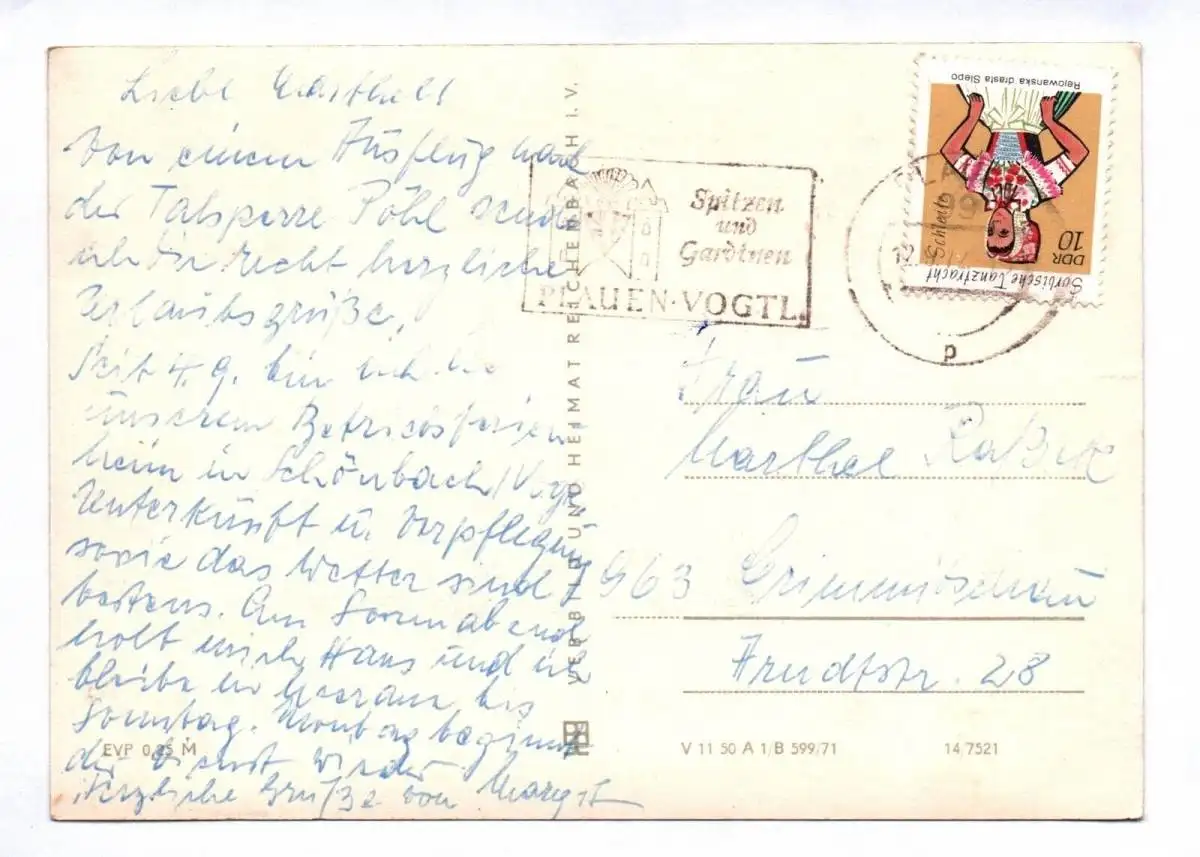 Liebe Marthel!
Von einem Ausflug nach
der Talsperre Pöhl sende
ich Dir recht herzliche
Urlaubsgrüße.
Seit 4.9. bin ich in
unserem Betriebsferien
heim in Schönbach/Vogt.
Unterkunft u. Verpflegung
sowie das Wetter sind
bestens. Am Sonnabend
holt mich Hans und ich
bleibe in Meerane bis
Sonntag. Montag beginnt
der Dienst wieder
Herzliche Grüße von Margit
EVP 0,25 M
VEB BILD UND HEIMAT REICHENBACH I. V.
Spitzen
und
Gardinen
PLAUEN · VOGTL.
p
Rejowanska drasta Slepo
DDR
10
Sorbische Tanztracht
Schleife
Frau
Marthel
963 Crimmitschau
28
V 11 50 A 1/B 599/71
14 7521